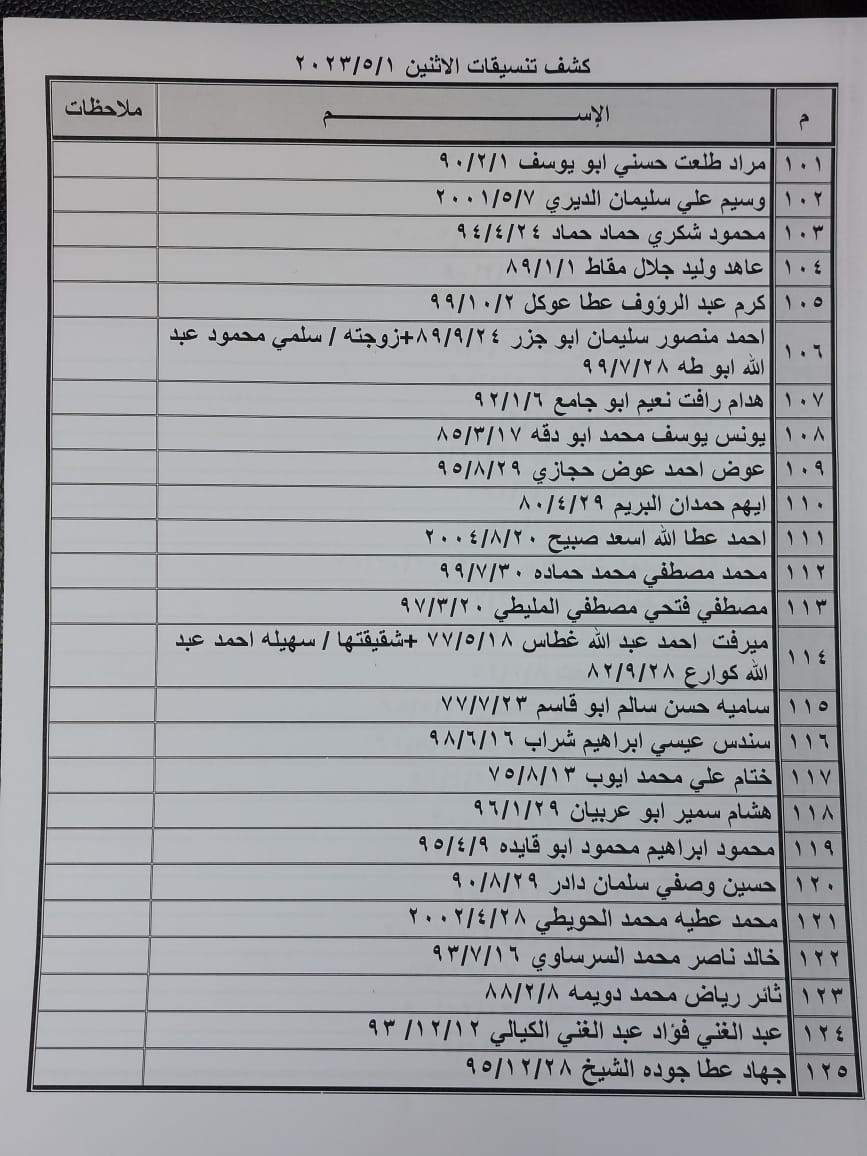 كشف تنسيقات الاثنين ٢٠٢٣/٥/١
م الإســـــــــــــم ملاحظات
١٠١ مراد طلعت حسني ابو يوسف ٩٠/٢/١
١٠٢ وسيم علي سليمان الديري ٢٠٠١/٥/٧
١٠٣ محمود شكري حماد حماد ٩٤/٤/٢٤
١٠٤ عاهد وليد جلال مقاط ٨٩/١/١
١٠٥ كرم عبد الرؤوف عطا عوكل ٩٩/١٠/٢
١٠٦ احمد منصور سليمان ابو جزر ٨٩/٩/٢٤+زوجته / سلمي محمود عبد
الله ابو طه ٩٩/٧/٢٨
١٠٧ هدام رافت نعيم ابو جامع ٩٢/١/٦
١٠٨ يونس يوسف محمد ابو دقه ٨٥/٣/١٧
١٠٩ عوض احمد عوض حجازي ٩٥/٨/٢٩
١١٠ ايهم حمدان البريم ٨٠/٤/٢٩
١١١ احمد عطا الله اسعد صبيح ٢٠٠٤/٨/٢٠
١١٢ محمد مصطفي محمد حماده ٩٩/٧/٣٠
١١٣ مصطفي فتحي مصطفي المليطي ٩٧/٣/٢٠
١١٤ ميرفت احمد عبد الله غطاس ٧٧/٥/١٨ +شقيقتها / سهيله احمد عبد
الله كوارع ٨٢/٩/٢٨
١١٥ ساميه حسن سالم ابو قاسم ٧٧/٧/٢٣
١١٦ سندس عيسي ابراهيم شراب ٩٨/٦/١٦
١١٧ ختام علي محمد ايوب ٧٥/٨/١٣
١١٨ هشام سمير ابو عربيان ٩٦/١/٢٩
١١٩ محمود ابراهيم محمود ابو قايده ٩٥/٤/٩
١٢٠ حسين وصفي سلمان دادر ٩٠/٨/٢٩
١٢١ محمد عطيه محمد الحويطي ٢٠٠٢/٤/٢٨
١٢٢ خالد ناصر محمد السرساوي ٩٣/٧/١٦
١٢٣ ثائر رياض محمد دويمه ٨٨/٢/٨
١٢٤ عبد الغني فؤاد عبد الغني الكيالي ٩٣ /١٢/١٢
١٢٥ جهاد عطا جوده الشيخ ٩٥/١٢/٢٨